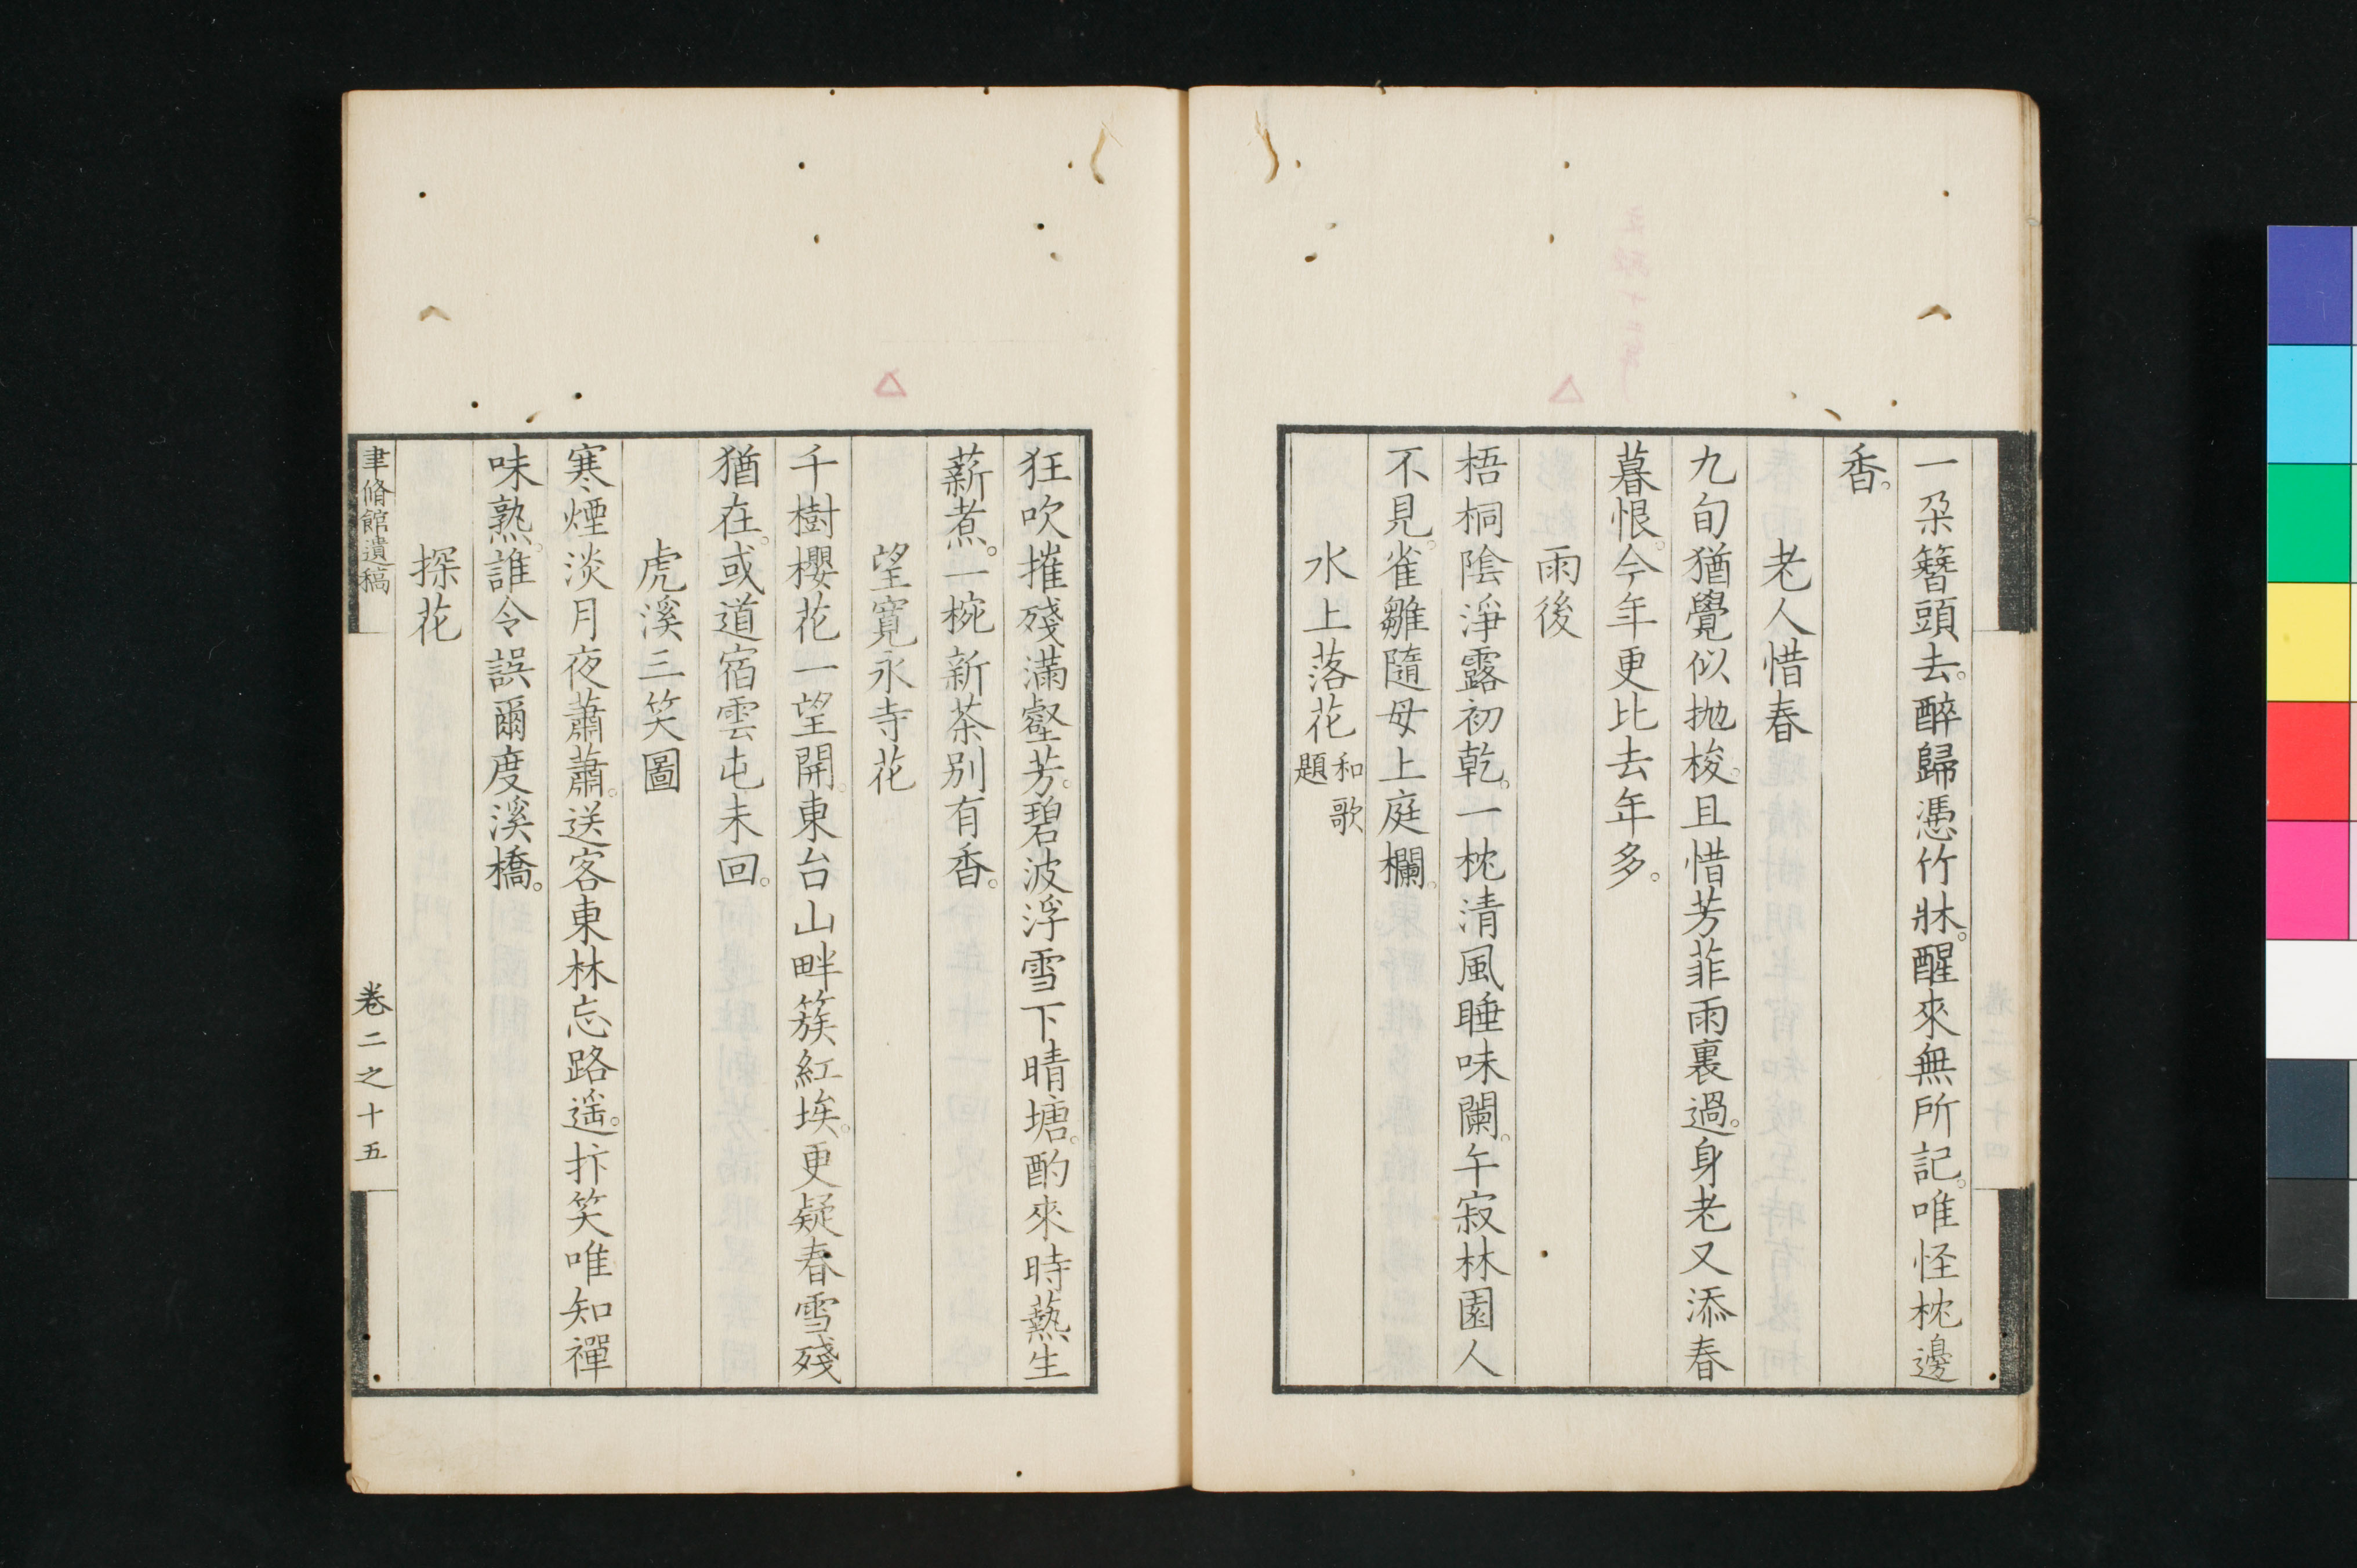 一朶簪頭去。醉歸憑竹牀。醒來無所記。唯怪枕邊
香。
老人惜春
九旬猶覺似抛梭。且惜芳菲雨裏過。身老又添春
暮恨。今年更比去年多。
雨後
梧桐陰淨露初乾。一枕清風睡味闌。午寂林園人
不見。雀雛隨母上庭欄。
水上落花和歌題
狂吹摧殘滿壑芳。碧波浮雪下晴塘。酌來時爇生
薪煮。一椀新茶別有香。
望寛永寺花
千樹櫻花一望開。東台山畔簇紅埃。更疑春雪殘
猶在。或道宿雲屯未回。
虎溪三笑圖
寒煙淡月夜蕭蕭。送客東林忘路遥。抃笑唯知禪
味熟。誰令誤爾度溪橋。
探花
聿脩館遺稿
卷二之十五